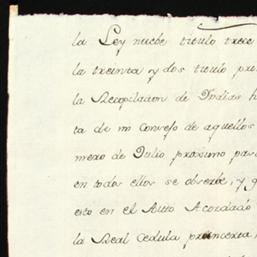 la Ley nuebe titulo trece
la treinta y dos titulo pri
la Recopilacion de Indias h
ta de mi Consejo de aquellos
mero de Julio proximo pas
en todos ellos se observe, y g
esto en el Auto Acordado
la Real Cedula